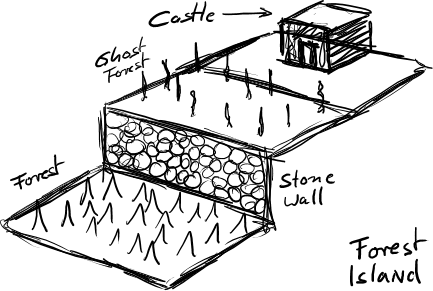 Castle
Ghost
Forest
Forest
Stone
Wall
Forest
Island